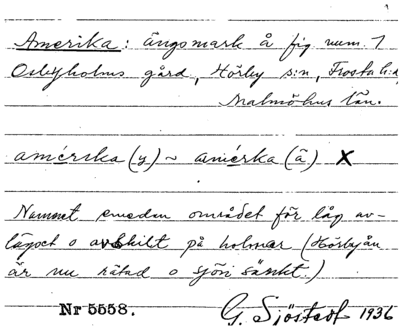 Amerika: ängsmark å fig num. 1
Osbyholms gård, Hörby s:n, Frosta h:d
Malmöhus län.
amérika (y) ~ amérika (ä) X
Namnet emedan området för låg av-
lägset o avskilt på holmar (Hörbyån
är nu rätad o sjön sänkt.)
Nr 5558. G. Sjöstedt 1936